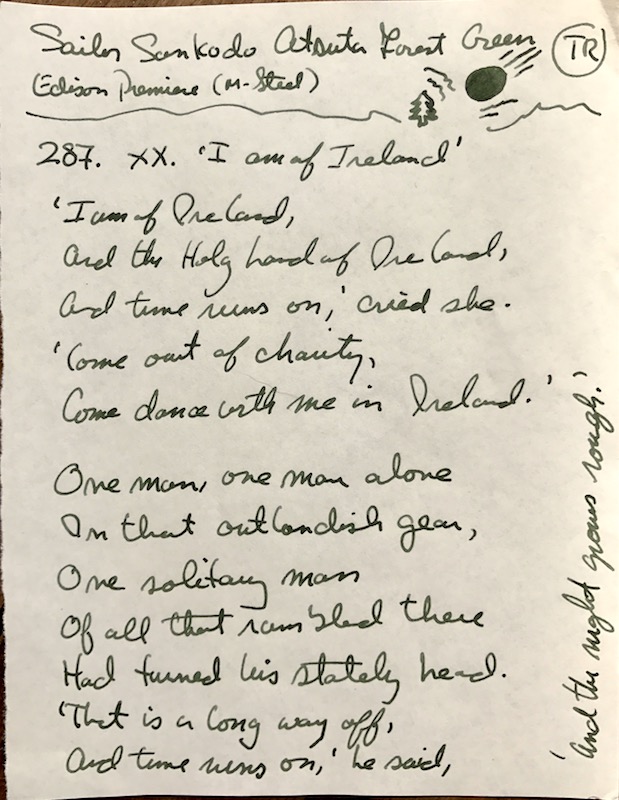 Sailor Sankodo Atsuta Forest Green
TR
Edison Premiere (M-Steel)
287. XX. 'I am of Ireland'
'I am of Ireland,
And the Holy Land of Ireland,
And time runs on,' cried she.
'Come out of charity,
Come dance with me in Ireland.'
One man, one man alone
In that outlandish gear,
One solitary man
Of all that rambled there
Had turned his stately head.
'That is a long way off,
And time runs on,' he said,
'And the night grows rough.'